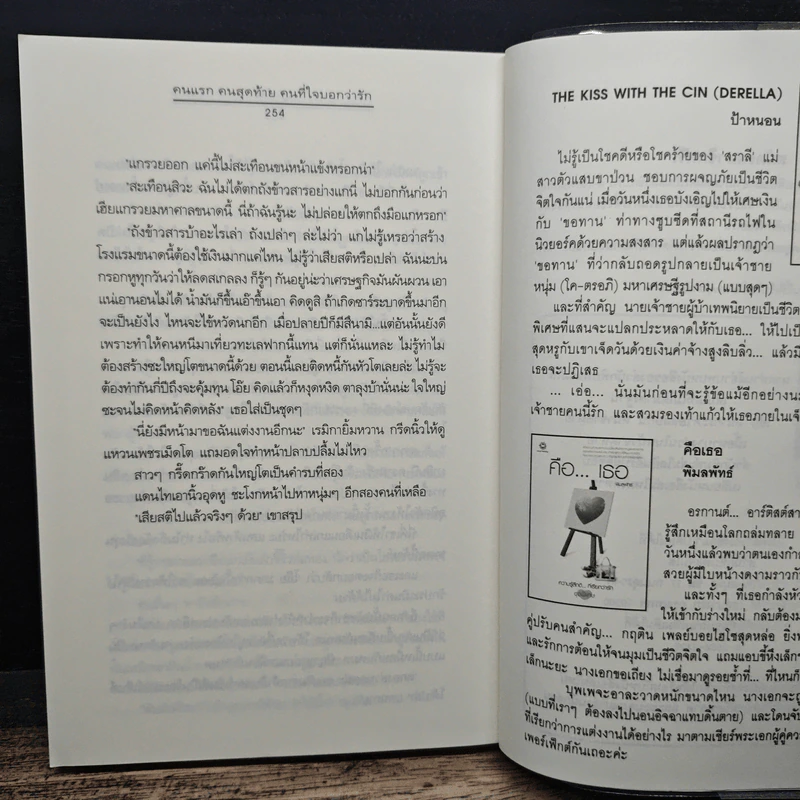 คนแรก คนสุดท้าย คนที่ใจบอกว่ารัก
254
"แกรวยออก แค่นี้ไม่สะเทือนขนหน้าแข้งหรอกน่า"
"สะเทือนสิวะ ฉันไม่ได้ตกถังข้าวสารอย่างแกนี่ ไม่บอกกันก่อนว่า
เฮียแกรวยมหาศาลขนาดนี้ นี่ถ้าฉันรู้นะ ไม่ปล่อยให้ตกถึงมือแกหรอก"
"ถังข้าวสารบ้าอะไรเล่า ถังเปล่าๆ ล่ะไม่ว่า แกไม่รู้เหรอว่าสร้าง
โรงแรมขนาดนี้ต้องใช้เงินมากแค่ไหน ไม่รู้ว่าเสียสติหรือเปล่า ฉันนะบ่น
กรอกหูทุกวันว่าให้ลดสเกลลง ก็รู้ๆ กันอยู่น่ะว่าเศรษฐกิจมันผันผวน เอา
แน่เอานอนไม่ได้ น้ำมันก็ขึ้นเอาขึ้นเอา คิดดูสิ ถ้าเกิดซาร์ระบาดขึ้นมาอีก
จะเป็นยังไง ไหนจะไข้หวัดนกอีก เมื่อปลายปีก็มีสึนามิ...แต่อันนั้นยังดี
เพราะทำให้คนหนีมาเที่ยวทะเลฟากนี้แทน แต่ก็นั่นแหละ ไม่รู้ทำไม
ต้องสร้างซะใหญ่โตขนาดนี้ด้วย ตอนนี้เลยติดหนี้กันหัวโตเลยล่ะ ไม่รู้จะ
ต้องทำกันกี่ปีถึงจะคุ้มทุน โอ๊ย คิดแล้วก็หงุดหงิด ตาลุงบ้านั่นน่ะ ใจใหญ่
ซะจนไม่คิดหน้าคิดหลัง" เธอใส่เป็นชุดๆ
"นี่ยังมีหน้ามาขอฉันแต่งงานอีกนะ" เรมิกายิ้มหวาน กรีดนิ้วให้ดู
แหวนเพชรเม็ดโต แถมอดใจทำหน้าปลาบปลื้มไม่ไหว
สาวๆ กรี๊ดกร๊าดกันใหญ่โตเป็นคำรบที่สอง
แดนไทเอานิ้วอุดหู ชะโงกหน้าไปหาหนุ่มๆ อีกสองคนที่เหลือ
"เสียสติไปแล้วจริงๆ ด้วย" เขาสรุป
THE KISS WITH THE CIN (DERELLA)
ป้าหนอน
ไม่รู้เป็นโชคดีหรือโชคร้ายของ 'สราลี' แม่
สาวตัวแสบขาป่วน ชอบการผจญภัยเป็นชีวิต
จิตใจกันแน่ เมื่อวันหนึ่งเธอบังเอิญไปให้เศษเงิน
กับ 'ขอทาน' ท่าทางซูบซีดที่สถานีรถไฟใน
นิวยอร์คด้วยความสงสาร แต่แล้วผลปรากฏว่า
'ขอทาน' ที่ว่ากลับถอดรูปกลายเป็นเจ้าชาย
หนุ่ม (ใค-ตรอภิ) มหาเศรษฐีรูปงาม (แบบสุดๆ)
และที่สำคัญ นายเจ้าชายผู้บ้าเทพนิยายเป็นชีวิต
พิเศษที่แสนจะแปลกประหลาดให้กับเธอ... ให้ไปเป็
สุดหรูกับเขาเจ็ดวันด้วยเงินค่าจ้างสูงลิบลิ่ว... แล้วมี
เธอจะปฏิเสธ
... เอ่อ... นั่นมันก่อนที่จะรู้ข้อแม้อีกอย่างน
เจ้าชายคนนี้รัก และสวมรองเท้าแก้วให้เธอภายในเจ็
คือเธอ
พิมลพัทธ์
คือ... เธอ
พิมลพัทธ์
ความรู้สึกดี... ที่เรียกว่ารัก
อรกานต์... อาร์ติสต์สา
รู้สึกเหมือนโลกถล่มทลาย
วันหนึ่งแล้วพบว่าตนเองกำ
สวยผู้มีใบหน้างดงามราวกั
และทั้งๆ ที่เธอกำลังหัว
ให้เข้ากับร่างใหม่ กลับต้องม
คู่ปรับคนสำคัญ... กฤติน เพลย์บอยไฮโซสุดหล่อ ยิ่งพ
และรักการต้อนให้จนมุมเป็นชีวิตจิตใจ แถมแอบขี้หึงเล็กๆ
เล็กนะยะ นางเอกขอเถียง ไม่เชื่อมาดูรอยช้ำที่... ที่ไหนก็
บุพเพจะอาละวาดหนักขนาดไหน นางเอกจะถู
(แบบที่เราๆ ต้องลงไปนอนอิจฉาแทบดิ้นตาย) และโดนจับ
ที่เรียกว่าการแต่งงานได้อย่างไร มาตามเชียร์พระเอกผู้คู่คว
เพอร์เฟ็กต์กันเถอะค่ะ